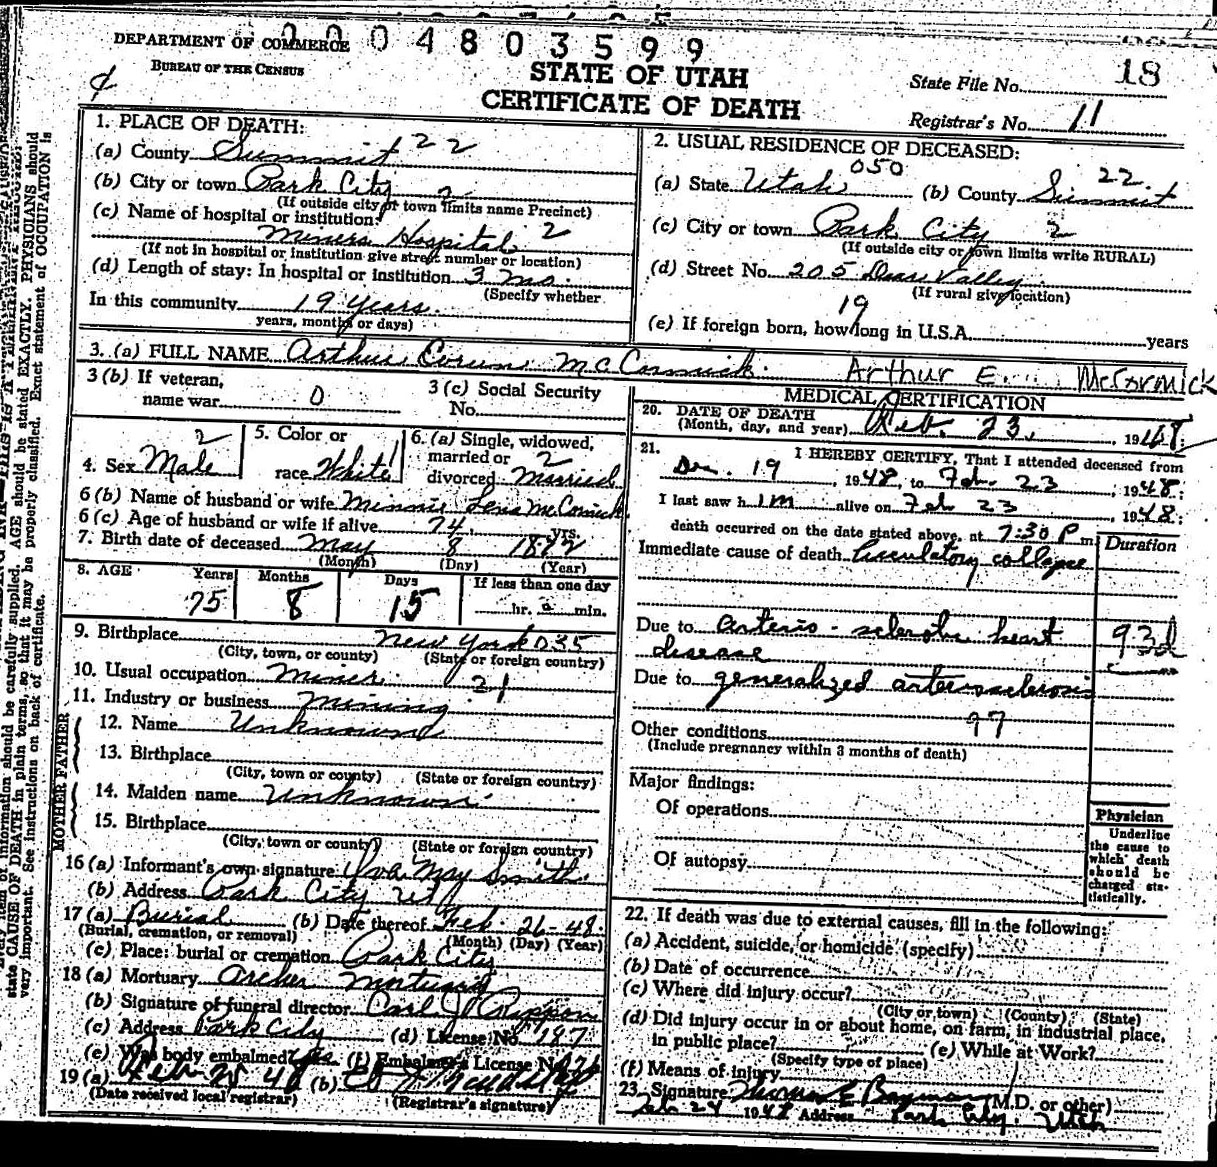 0004803599
DEPARTMENT OF COMMERCE
BUREAU OF THE CENSUS
STATE OF UTAH
CERTIFICATE OF DEATH
State File No. 18
Registrar's No. 11
1. PLACE OF DEATH:
(a) County Summit 22
(b) City or town Park City 2
(If outside city or town limits name Precinct)
(c) Name of hospital or institution:
Miners Hospital 2
(If not in hospital or institution give street number or location)
(d) Length of stay: In hospital or institution 3 mo.
(Specify whether
In this community 19 years.
years, months or days)
2. USUAL RESIDENCE OF DECEASED:
050
(a) State Utah (b) County Summit 22
(c) City or town Park City 2
(If outside city or town limits write RURAL)
(d) Street No. 205 Deer Valley
(If rural give location)
19
(e) If foreign born, how long in U.S.A. years
3. (a) FULL NAME Arthur McCormick. Arthur E. McCormick
3 (b) If veteran,
name war 0
3 (c) Social Security
No.
2
4. Sex Male
5. Color or
race White
6. (a) Single, widowed,
married or 2
divorced Married
6 (b) Name of husband or wife Minnie Lena McCormick
6 (c) Age of husband or wife if alive 74 yrs.
7. Birth date of deceased May 8 1872
(Month) (Day) (Year)
8. AGE Years Months Days If less than one day
75 8 15 hr. min.
9. Birthplace New York 035
(City, town, or county) (State or foreign country)
10. Usual occupation Miner 21
11. Industry or business Mining
FATHER
12. Name Unknown
13. Birthplace
(City, town or county) (State or foreign country)
MOTHER
14. Maiden name Unknown
15. Birthplace
(City, town or county) (State or foreign country)
16 (a) Informant's own signature Iva May Smith
(b) Address Park City Ut
17 (a) Burial (b) Date thereof Feb. 26-48
(Burial, cremation, or removal) (Month) (Day) (Year)
(c) Place: burial or cremation Park City
18 (a) Mortuary Archer Mortuary
(b) Signature of funeral director Carl J
(c) Address Park City (d) License No. 187
(e) Was body embalmed? Yes (f) Embalmer's License No.
19 (a) Feb (b)
(Date received local registrar) (Registrar's signature)
MEDICAL CERTIFICATION
20. DATE OF DEATH
(Month, day, and year) Feb. 23, 1948:
21. I HEREBY CERTIFY, That I attended deceased from
Dec. 19, 1948, to Feb. 23, 1948:
I last saw him alive on Feb 23 1948:
death occurred on the date stated above, at 7:30 P m.
Duration
Immediate cause of death Circulatory collapse
Due to arterio-sclerotic heart 93d
disease
Due to generalized arteriosclerosis
97
Other conditions
(Include pregnancy within 3 months of death)
Major findings:
Of operations
Of autopsy
Physician
Underline
the cause to
which death
should be
charged sta-
tistically.
22. If death was due to external causes, fill in the following:
(a) Accident, suicide, or homicide (specify)
(b) Date of occurrence
(c) Where did injury occur?
(City or town) (County) (State)
(d) Did injury occur in or about home, on farm, in industrial place,
in public place? (e) While at Work?
(Specify type of place)
(f) Means of injury
23. Signature Thomas E (M.D. or other)
Feb 24 1948 Address Park City, Utah
information should be carefully supplied. AGE should be stated EXACTLY. PHYSICIANS should
state CAUSE OF DEATH in plain terms, so that it may be properly classified. Exact statement of OCCUPATION is
very important. See instructions on back of certificate.